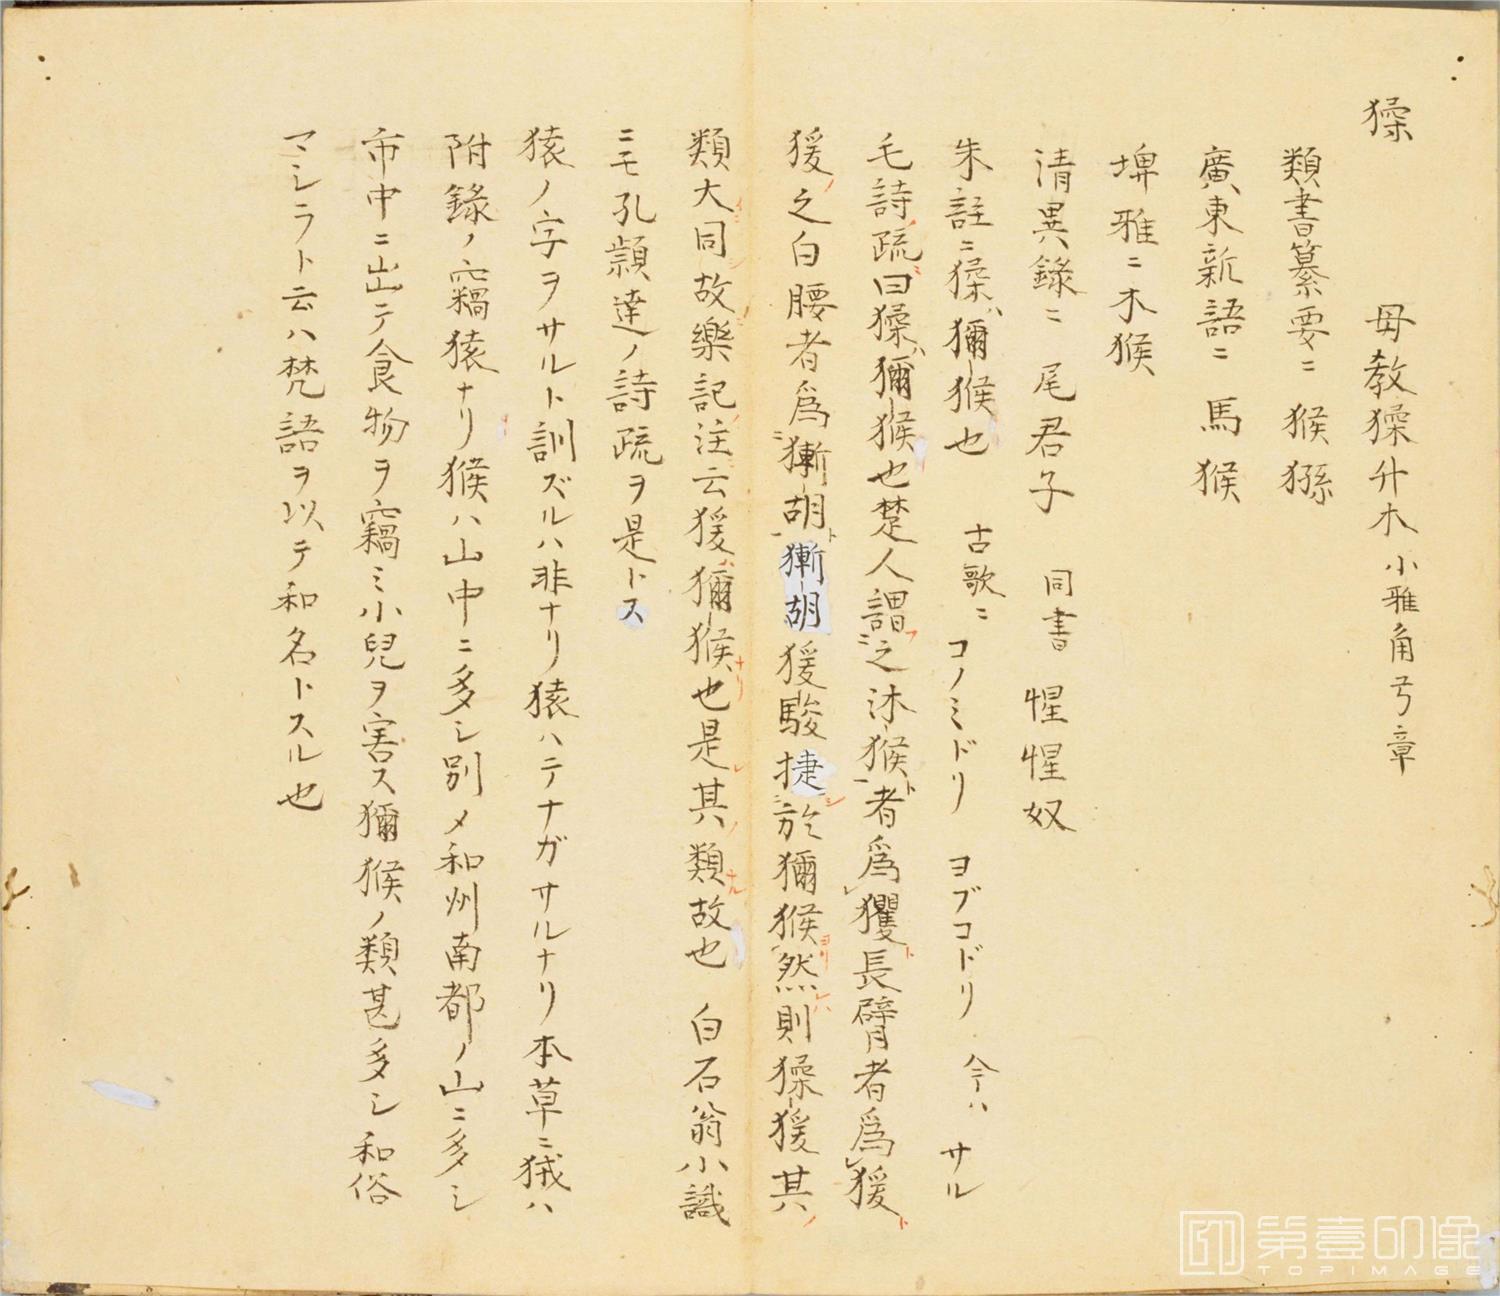 猱　毋敎猱升木 小雅角弓章
類書纂要ニ 猴猻
廣東新語ニ 馬猴
埤雅ニ木猴
清異錄ニ 尾君子 同書 惺惺奴
朱註ニ猱ハ獼猴也 古歌ニ コノミドリ ヨブコドリ 今ハ サル
毛詩疏曰猱ハ獼猴也楚人謂之沐猴者爲玃長臂者爲猨
猨之白腰者爲獑胡獑胡猨駿捷於獼猴然則猱猨其
類大同故樂記注云猨獼猴也是其類故也 白石翁小識
ニモ孔顈達ノ詩疏ヲ是トス
猿ノ字ヲサルト訓ズルハ非ナリ猿ハテナガサルナリ本草ニ狨ハ
附錄ノ竊猿ナリ猴ハ山中ニ多シ別メ和州南都ノ山ニ多シ
市中ニ出テ食物ヲ竊ミ小兒ヲ害ス獼猴ノ類甚多シ和俗
マシラト云ハ梵語ヲ以テ和名トスル也
第壹印像
TOPIMAGE